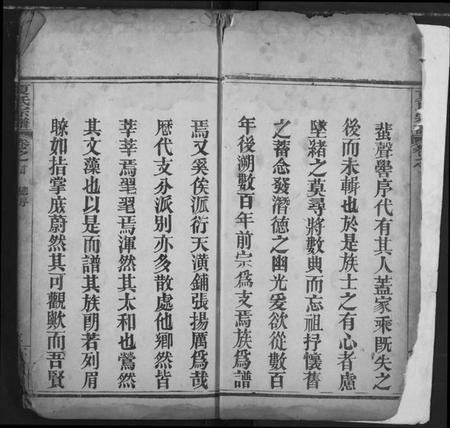 蜚聲黌序代有其人蓋家乘既失之
後而未輯也於是族士之有心者慮
墜緒之莫尋將數典而忘祖抒懷舊
之蓄念發潛德之幽光爰欲從數百
年後溯數百年前宗為支焉族為譜
焉又奚俟派衍天潢鋪張揚厲為哉
歷代支分派別亦多散處他鄉然皆
莘莘焉瞾瞾焉渾然其太和也鶯然
其文藻也以是而譜其族朗若列眉
瞭如指掌庶蔚然其可觀歟而吾賢
夏氏宗譜
卷之首